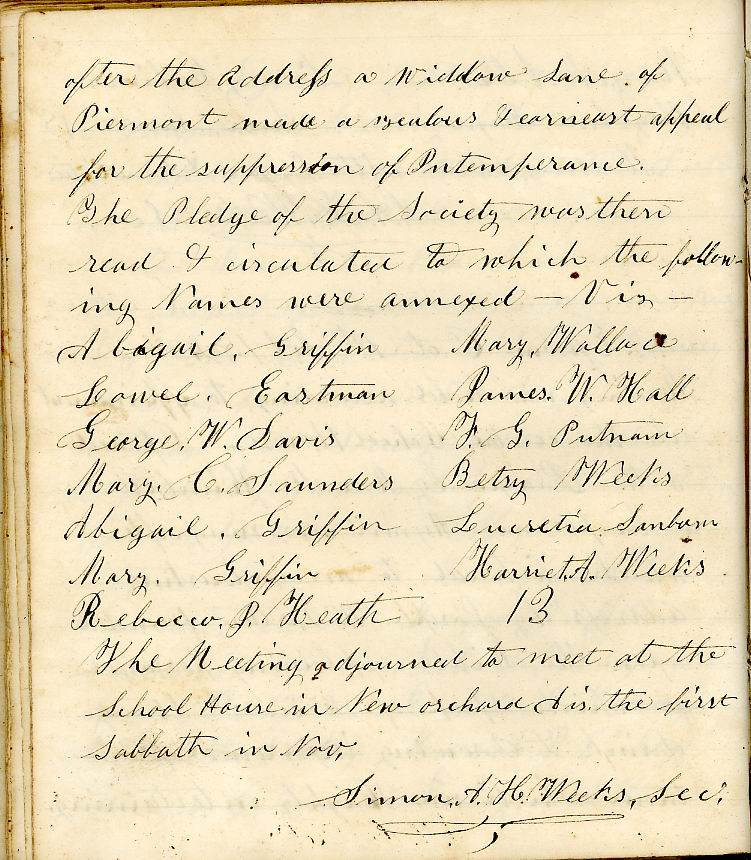 after the Address a widdow Lane. of
Piermont made a zealous & earneast appeal
for the suppression of Intemperance.
The Pledge of the Society was then
read & circulated to which the follow-
ing Names were annexed — Viz —
Abigail. Griffin Mary. Wallace
Lowel. Eastman James. W. Hall
George. W. Davis F. G. Putnam
Mary. C. Saunders Betsy Weeks
Abigail. Griffin Lucretia Sanborn
Mary. Griffin Harriet. A. Weeks
Rebecca. J. Heath 13
The Meeting adjourned to meet at the
School House in New orchard Dis. the first
Sabbath in Nov,
Simon. A. H. Weeks, Sec.